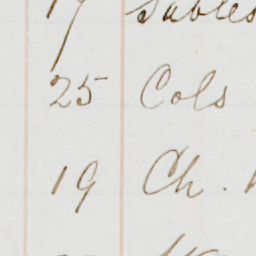 17 Sables
25 Cols
19 Ch.